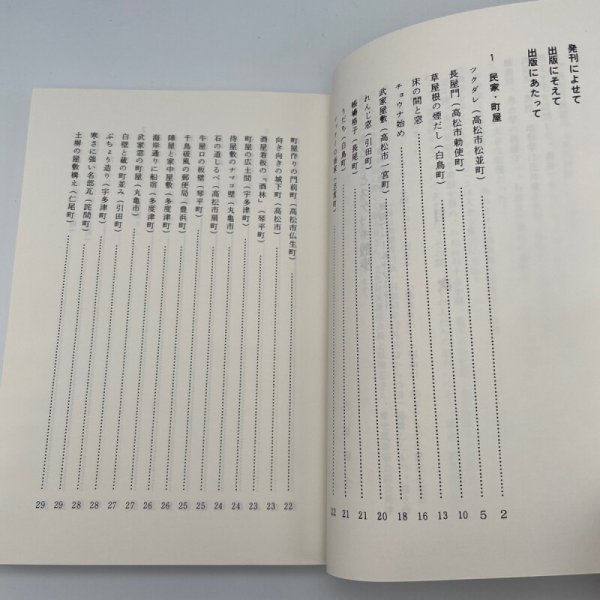 発刊によせて
出版にそえて
出版にあたって
1 民家・町屋
ツクダレ(高松市松並町) 2
長屋門(高松市勅使町) 5
草屋根の煙だし(白鳥町) 10
床の間と窓 13
チョウナ始め 16
武家屋敷(高松市一宮町) 18
れんじ窓(引田町) 20
格子(長尾町) 21
うだち(白鳥町) 21
22
町屋作りの門前町(高松市仏生町) 22
向き向きの城下町(高松市) 23
酒屋看板の「酒林」(琴平町) 23
町屋の広土間(宇多津町) 24
侍屋敷のナマコ壁(丸亀市) 24
石の道しるべ(高松市扇町) 24
牛屋口の板壁(琴平町) 25
千鳥破風の郵便局(豊浜町) 25
陣屋と家中屋敷(多度津町) 26
海岸通りに船宿(多度津町) 26
武家窓の町屋(丸亀市) 26
白壁と蔵の町並み(引田町) 27
ぶちょう造り(宇多津町) 27
寒さに強い名部瓦(詫間町) 28
土塀の屋敷構え(仁尾町) 28
29
29